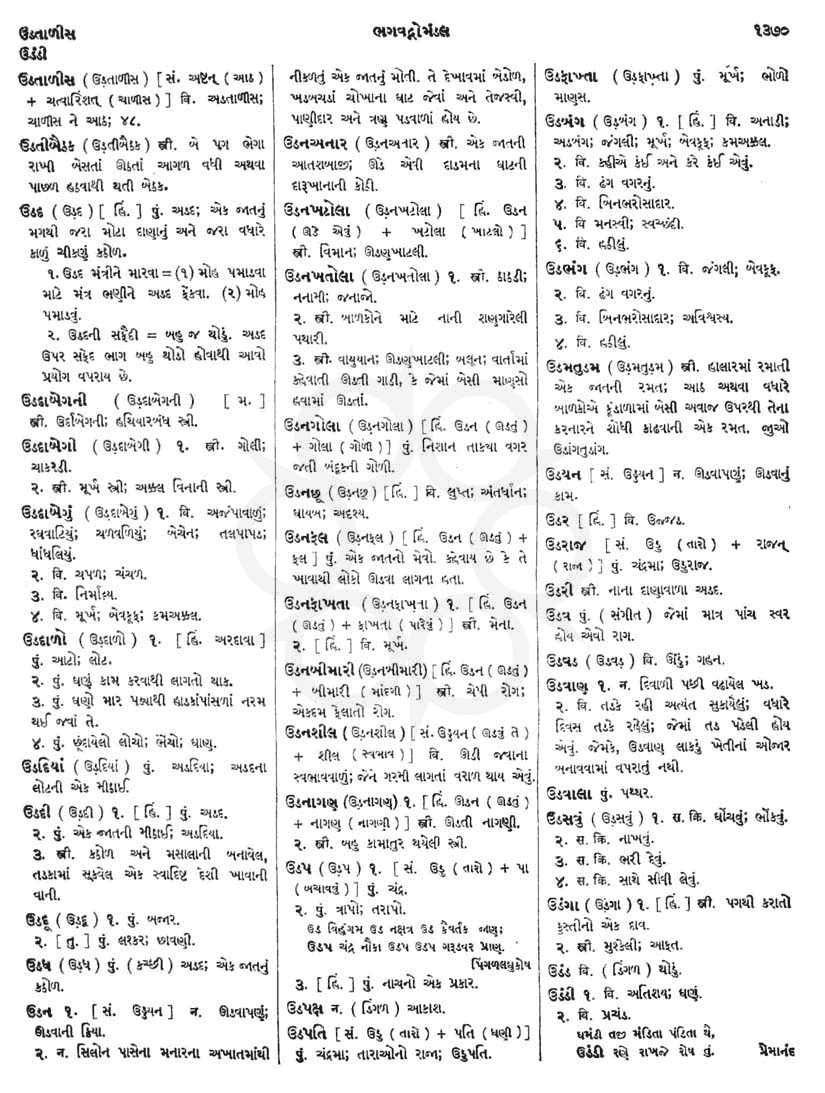 ઉડતાળીસ
ઉડંડી
ભગવદ્ગોમંડલ
૧૩૭૦
ઉડતાળીસ (ઉડ઼તાળીસ) [ સં. અષ્ટન્ (આઠ)
+ ચત્વારિંશત્ (ચાળીસ) ] વિ. અડતાળીસ;
ચાળીસ ને આઠ; ૪૮.
ઉડતીબેઠક (ઉડ઼તીબૈઠક) સ્ત્રી. બે પગ ભેગા
રાખી બેસતાં ઊઠતાં આગળ વધી અથવા
પાછળ હઠવાથી થતી બેઠક.
ઉડદ (ઉડ઼દ) [ હિં. ] પું. અડદ; એક જાતનું
મગથી જરા મોટા દાણાનું અને જરા વધારે
કાળું ચીકણું કઠોળ.
૧. ઉડદ મંત્રીને મારવા = (૧) મોહ પમાડવા
માટે મંત્ર ભણીને અડદ ફેંકવા. (૨) મોહ
પમાડવું.
૨. ઉડદની સફેદી = બહુ જ થોડું. અડદ
ઉપર સફેદ ભાગ બહુ થોડો હોવાથી આવો
પ્રયોગ વપરાય છે.
ઉડદાબેગની (ઉડ઼દાબેગની) [ મ. ]
સ્ત્રી. ઉર્દાબેગની; હથિયારબંધ સ્ત્રી.
ઉડદાબેગી (ઉડ઼દાબેગી) ૧. સ્ત્રી. ગોલી;
ચાકરડી.
૨. સ્ત્રી. મૂર્ખ સ્ત્રી; અક્કલ વિનાની સ્ત્રી.
ઉડદાબેગું (ઉડ઼દાબેગું) ૧. વિ. અજંપાવાળું;
રઘવાટિયું; ચળવળિયું; બેચેન; તલપાપડ;
ધાંધલિયું.
૨. વિ. ચપળ; ચંચળ.
૩. વિ. નિર્માલ્ય.
૪. વિ. મૂર્ખ; બેવકૂફ; કમઅક્કલ.
ઉડદાળો (ઉડ઼દાળો) ૧. [ હિં. અરદાવા ]
પું. આટો; લોટ.
૨. પું. ઘણું કામ કરવાથી લાગતો થાક.
૩. પું. ઘણો માર પડ્યાથી હાડકાંપાંસળાં નરમ
થઈ જવાં તે.
૪. પું. છૂંદાયેલો લોચો; ભેંચો; ઘાણ.
ઉડદિયાં (ઉડ઼દિયાં) પું. અડદિયા; અડદના
લોટની એક મીઠાઈ.
ઉડદી (ઉડ઼દી) ૧. [ હિં. ] પું. અડદ.
૨. પું. એક જાતની મીઠાઈ; અડદિયા.
૩. સ્ત્રી. કઠોળ અને મસાલાની બનાવેલ,
તડકામાં સૂકવેલ એક સ્વાદિષ્ટ દેશી ખાવાની
વાની.
ઉડદૂ (ઉડ઼દૂ) ૧. પું. બજાર.
૨. [ તુ. ] પું. લશ્કર; છાવણી.
ઉડધ (ઉડ઼ધ) પું. (કચ્છી) અડદ; એક જાતનું
કઠોળ.
ઉડન ૧. [ સં. ઉડ્ડયન ] ન. ઊડવાપણું;
ઊડવાની ક્રિયા.
૨. ન. સિલોન પાસેના મનારના અખાતમાંથી
નીકળતું એક જાતનું મોતી. તે દેખાવમાં બેડોળ,
ખડબચડાં ચોખાના ઘાટ જેવાં અને તેજસ્વી,
પાણીદાર અને ત્રણ પડવાળાં હોય છે.
ઉડનઅનાર (ઉડ઼નઅનાર) સ્ત્રી. એક જાતની
આતશબાજી; ઊડે એવી દાડમના ઘાટની
દારૂખાનાની કોઠી.
ઉડનખટોલા (ઉડ઼નખટોલા) [ હિં. ઉડન
(ઊડે એવું) + ખટોલા (ખાટલો) ]
સ્ત્રી. વિમાન; ઊડણખાટલી.
ઉડનખતોલા (ઉડ઼નખતોલા) ૧. સ્ત્રી. ઠાઠડી;
નનામી; જનાજો.
૨. સ્ત્રી. બાળકોને માટે નાની શણગારેલી
પથારી.
૩. સ્ત્રી. વાયુયાન; ઊડણખાટલી; બલૂન; વાર્તામાં
કહેવાતી ઊડતી ગાડી, કે જેમાં બેસી માણસો
હવામાં ઊડતાં.
ઉડનગોલા (ઉડ઼નગોલા) [ હિં. ઉડન (ઊડતું)
+ ગોલા (ગોળી) ] પું. નિશાન તાક્યા વગર
જતી બંદૂકની ગોળી.
ઉડનછૂ (ઉડ઼નછૂ) [ હિં. ] વિ. લુપ્ત; અંતર્ધાન;
ગાયબ; અદૃશ્ય.
ઉડનફલ (ઉડ઼નફલ) [ હિં. ઉડન (ઊડતું) +
ફલ ] પું. એક જાતનો મેવો. કહેવાય છે કે તે
ખાવાથી લોકો ઊડવા લાગતા હતા.
ઉડનફાખતા (ઉડ઼નફાખતા) ૧. [ હિં. ઉડન
(ઊડતું) + ફાખતા (પારેવું) ] સ્ત્રી. મેના.
૨. [ હિં. ] વિ. મૂર્ખ.
ઉડનબીમારી (ઉડ઼નબીમારી) [ હિં. ઉડન (ઊડતું)
+ બીમારી (માંદગી) ] સ્ત્રી. ચેપી રોગ;
એકદમ ફેલાતો રોગ.
ઉડનશીલ (ઉડ઼નશીલ) [ સં. ઉડ્ડયન (ઊડવું તે)
+ શીલ (સ્વભાવ) ] વિ. ઊડી જવાના
સ્વભાવવાળું; જેને ગરમી લાગતાં વરાળ થાય એવું.
ઉડનાગણ (ઉડ઼નાગણ) ૧. [ હિં. ઊડન (ઊડતું)
+ નાગણ (નાગણી) ] સ્ત્રી. ઊડતી નાગણી.
૨. સ્ત્રી. બહુ કામાતુર થયેલી સ્ત્રી.
ઉડપ (ઉડ઼પ) ૧. [ સં. ઉડુ (તારો) + પા
(બચાવવું) ] પું. ચંદ્ર.
૨. પું. ત્રાપો; તરાપો.
ઉડ વિહંગમ ઉડ નક્ષત્ર ઉડ કેવર્તક જાણ;
ઉડપ ચંદ્ર નૌકા ઉડપ ઉડપ ગરૂડવર પ્રાણ.
પિંગળલઘુકોષ
૩. [ હિં. ] પું. નાચનો એક પ્રકાર.
ઉડપક્ષ ન. (ડિંગળ) આકાશ.
ઉડપતિ [ સં. ઉડુ (તારો) + પતિ (ધણી) ]
પું. ચંદ્રમા; તારાઓનો રાજા; ઉડુપતિ.
ઉડફાખ્તા (ઉડ઼ફાખ્તા) પું. મૂર્ખ; ભોળો
માણસ.
ઉડબંગ (ઉડ઼બંગ) ૧. [ હિં. ] વિ. અનાડી;
અડબંગ; જંગલી; મૂર્ખ; બેવકૂફ; કમઅક્કલ.
૨. વિ. કહીએ કંઈ અને કરે કંઈ એવું.
૩. વિ. ઢંગ વગરનું.
૪. વિ. બિનભરોસાદાર.
૫. વિ મનસ્વી; સ્વચ્છંદી.
૬. વિ. હઠીલું.
ઉડભંગ (ઉડ઼ભંગ) ૧. વિ. જંગલી; બેવકૂફ.
૨. વિ. ઢંગ વગરનું.
૩. વિ. બિનભરોસાદાર; અવિશ્વસ્ય.
૪. વિ. હઠીલું.
ઉડમતુડમ (ઉડ઼મતુડ઼મ) સ્ત્રી. હાલારમાં રમાતી
એક જાતની રમત; આઠ અથવા વધારે
બાળકોએ કૂંડાળામાં બેસી અવાજ ઉપરથી તેના
કરનારને શોધી કાઢવાની એક રમત. જુઓ
ઉડાંગતુડાંગ.
ઉડયન [ સં. ઉડ્ડયન ] ન. ઊડવાપણું; ઊડવાનું
કામ.
ઉડર [ હિં. ] વિ. ઉજ્જડ.
ઉડરાજ [ સં. ઉડુ (તારો) + રાજન્
(રાજા) ] પું. ચંદ્રમા; ઉડુરાજ.
ઉડરી સ્ત્રી. નાના દાણાવાળા અડદ.
ઉડવ પું. (સંગીત) જેમાં માત્ર પાંચ સ્વર
હોય એવો રાગ.
ઉડવડ (ઉડવડ઼) વિ. ઊંડું; ગહન.
ઉડવાણ ૧. ન. દિવાળી પછી વઢાયેલ ખડ.
૨. વિ. તડકે રહી અત્યંત સુકાયેલું; વધારે
દિવસ તડકે રહેલું; જેમાં તડ પડેલી હોય
એવું. જેમકે, ઉડવાણ લાકડું ખેતીનાં ઓજાર
બનાવવામાં વપરાતું નથી.
ઉડવાલા પું. પથ્થર.
ઉડસવું (ઉડ઼સવું) ૧. સ. ક્રિ. ઘોંચવું; ભોંકવું.
૨. સ. ક્રિ. નાખવું.
૩. સ. ક્રિ. ભરી દેવું.
૪. સ. ક્રિ. સાથે સીવી લેવું.
ઉડંગા (ઉડ઼ંગા) ૧. [ હિં. ] સ્ત્રી. પગથી કરાતો
કુસ્તીનો એક દાવ.
૨. સ્ત્રી. મુશ્કેલી; આફત.
ઉડંડ વિ. (ડિંગળ) થોડું.
ઉડંડી ૧. વિ. અતિશય; ઘણું.
૨. વિ. પ્રચંડ.
ઘમંડી તજી મંડિતા પંડિતા થે,
ઉડંડી રણે રાખજે રોષ તું. પ્રેમાનંદ